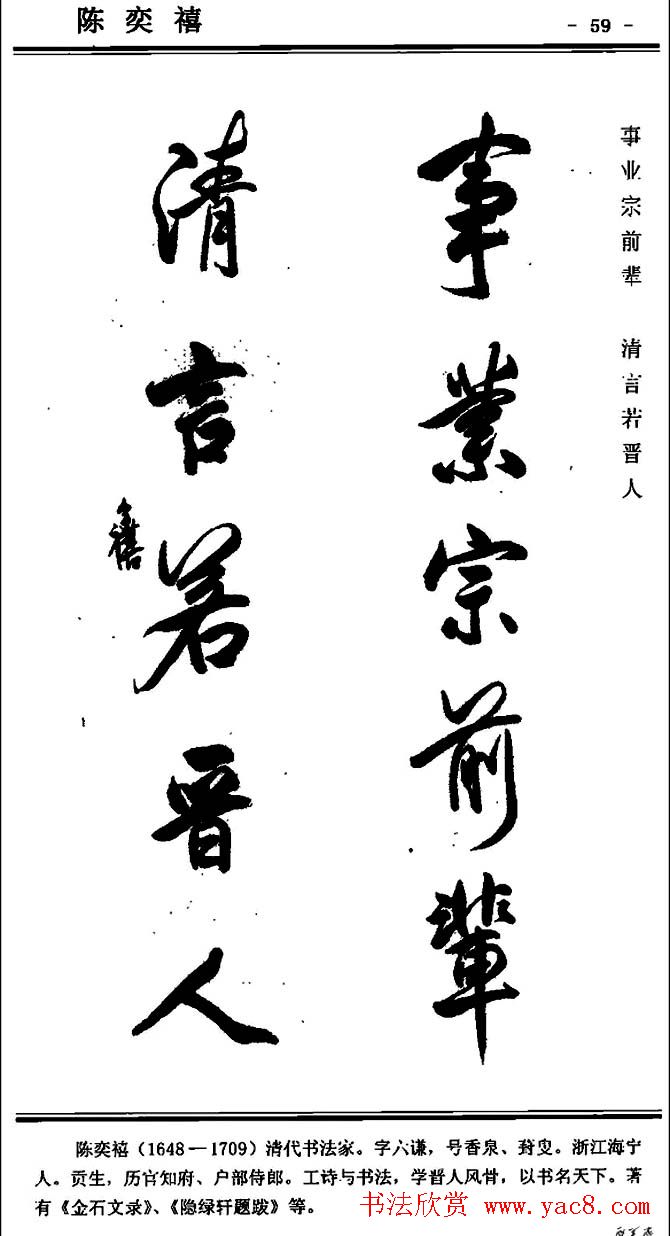 陈奕禧
- 59 -
事業宗前輩
清言若晋人
禧
事业宗前辈 清言若晋人
陈奕禧（1648—1709）清代书法家。字六谦，号香泉、葑叟。浙江海宁
人。贡生，历官知府、户部侍郎。工诗与书法，学晋人风骨，以书名天下。著
有《金石文录》、《隐绿轩题跋》等。
书法欣赏 www.yac8.com